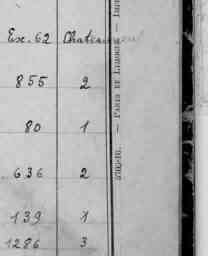 Ex. 62 Chateauneuf
855 2
80 1
636 2
139 1
1286 3
PARIS ET LIMOGES. — IMP